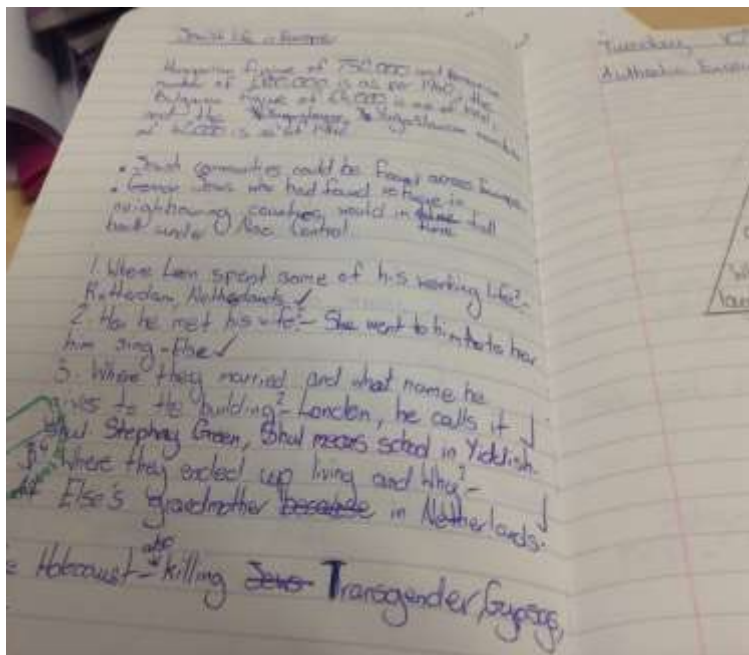 Jewish life in Europe
Hungarian figure of 750,000 and Romanian
number of is as per 1940, the
Bulgarian figure of is as of
and the Yugoslavian number
of is as of
• Jewish communities could be found across Europe.
• German Jews who had found refuge in
neighbouring countries, would in time fall
back under Nazi Control.
1. Where Leon spent some of his working life?-
Rotterdam, Netherlands ✓
2. How he met his wife?- She went to him to hear
him sing - Else ✓
3. Where they married and what name he
gives to the building?- London, he calls it
Shul Stephney Green, Shul means school in Yiddish.
Where they ended up living and Why?-
Else's grandmother because in Netherlands.
Holocaust - killing Jews Transgender, Gypsys,
Tuesday
Authentic